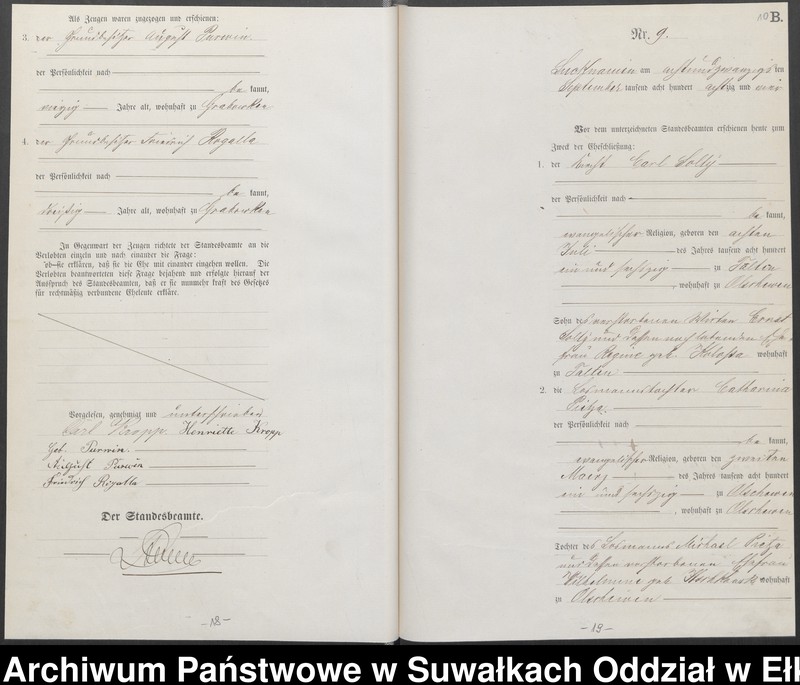 Als Zeugen waren zugezogen und erschienen:
3. der Grundbesitzer August Purwin
der Persönlichkeit nach
be kannt,
vierzig Jahre alt, wohnhaft zu Grabowken
4. der Grundbesitzer Friedrich Rogalla
der Persönlichkeit nach
be kannt,
dreißig Jahre alt, wohnhaft zu Grabowken
In Gegenwart der Zeugen richtete der Standesbeamte an die
Verlobten einzeln und nach einander die Frage:
ob sie erklären, daß sie die Ehe mit einander eingehen wollen. Die
Verlobten beantworteten diese Frage bejahend und erfolgte hierauf der
Ausspruch des Standesbeamten, daß er sie nunmehr kraft des Gesetzes
für rechtmäßig verbundene Eheleute erkläre.
Vorgelesen, genehmigt und unterschrieben
Carl Kropp Henriette Kropp
geb. Purwin.
August Purwin
Friedrich Rogalla
Der Standesbeamte.
-18-
10 B.
Nr. 9.
am achtundzwanzigsten
September tausend acht hundert achtzig und vier
Vor dem unterzeichneten Standesbeamten erschienen heute zum
Zweck der Eheschließung:
1. der Knecht Carl Solty
der Persönlichkeit nach
be kannt,
evangelischer Religion, geboren den achten
Juli des Jahres tausend acht hundert
ein und sechszig zu Talten
, wohnhaft zu Olschewen
Sohn des verstorbenen Wirten Ernst
Solty und dessen noch lebenden Ehe-
frau Regine geb. Kolossa wohnhaft
zu Talten
2. die Losmannstochter Catharina
der Persönlichkeit nach
be kannt,
evangelischer Religion, geboren den zweiten
März des Jahres tausend acht hundert
ein und sechszig zu Olschewen
, wohnhaft zu Olschewen
Tochter des Losmanns Michael
und dessen verstorbenen Ehefrau
Wilhelmine geb. wohnhaft
zu Olschewen
-19-
Archiwum Państwowe w Suwałkach Oddział w Ełk